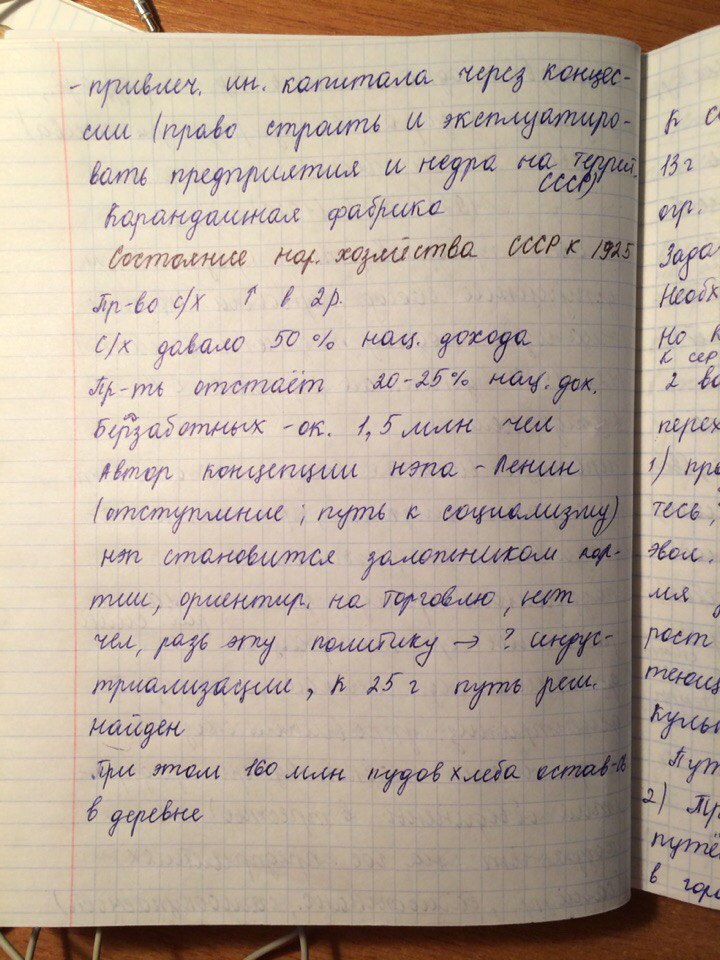 - привлеч. ин. капитала через концес-
сии (право строить и эксплуатиро-
вать предприятия и недра на террит.
СССР)
Карандашная фабрика
Состояние нар. хозяйства СССР к 1925
Пр-во с/х ↑ в 2 р.
С/х давало 50% нац. дохода
Пр-ть отстаёт 20-25% нац. дох.
Безработных - ок. 1,5 млн чел
Автор концепции нэпа - Ленин
(отступление; путь к социализму)
нэп становится заложником пар-
тии, ориентир. на торговлю, нет
чел, разв эту политику → ? индус-
триализации, к 25 г путь реш.
найден
При этом 160 млн пудов хлеба остав-сь
в деревне
к
13 г
огр.
Зада
Необх
Но к
к сер
2 во
перех
1) пр
тесь,
эвол.
мия
рост
теющ
куль
Пут
2) Пр
путё
в горо